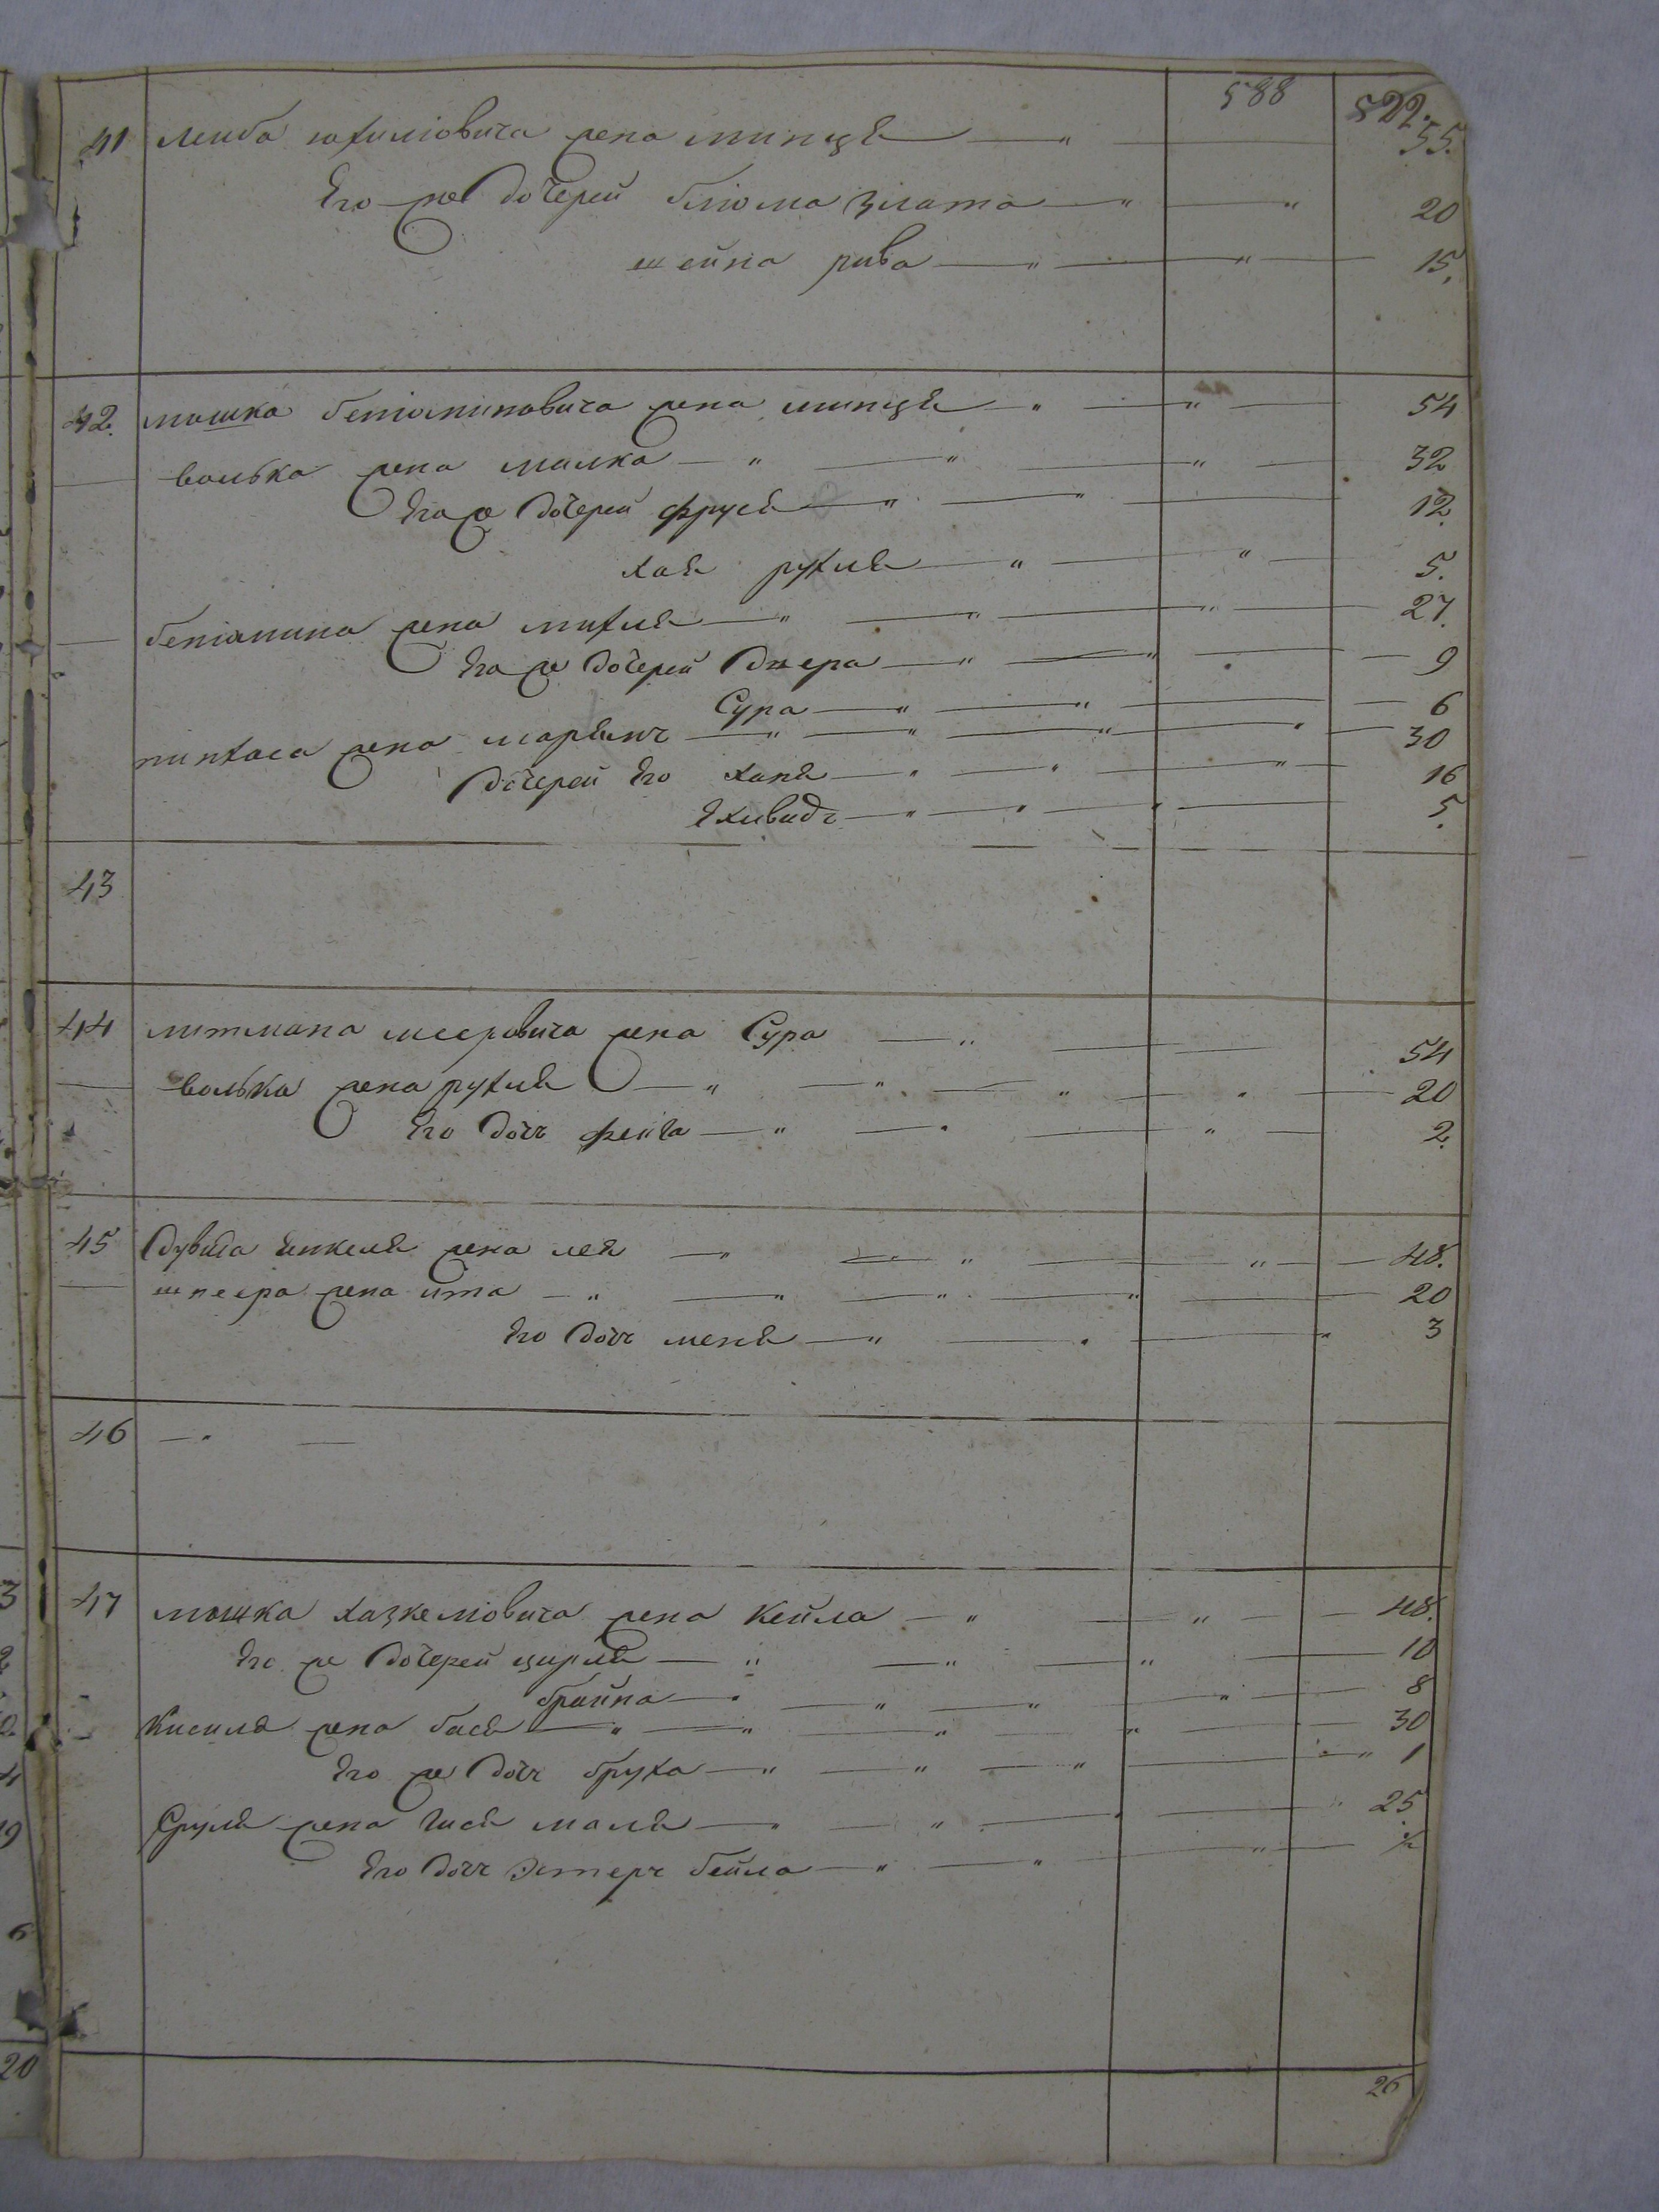 588 522.
41 Лейба юхимовича жена минця 55.
Его же дочерей блюма злата 20
шейна рива 15.
42. мошка бениоминовича жена минця 54
волька жена малка 32
Его же дочерей фруся 12
хая рухля 5.
бениамина жена михля 27.
Его же дочерей двера 9
Сура 6
пинхаса жена марьямъ 30
дочерей Его ханя 16
Яхивидъ 5.
43
44 литмана мееровича жена Сура 54
волька жена рухля 20
Его дочь фейга 2.
45 Дувида янкеля жена лея 48.
шнеера жена ита 20
Его дочь меня 3
46
47 мошка хазкелиовича жена Кейла 48.
Его же дочерей цирля 10
брайна 8
Кисиля жена бася 30
Его же дочь бруха 1
Сруля жена гися маля 25
Его дочь Эстеръ бейла ½
26
3
2
2
4
19
6
20